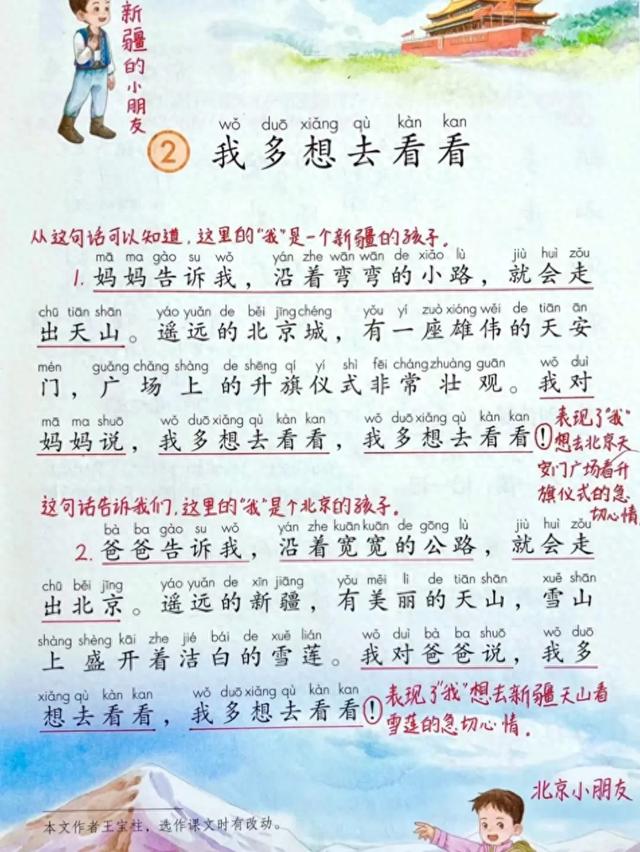 新疆的小朋友
wǒ duō xiǎng qù kàn kan
2 我多想去看看
从这句话可以知道，这里的“我”是一个新疆的孩子。
mā ma gào su wǒ yán zhe wān wān de xiǎo lù jiù huì zǒu
1. 妈妈告诉我，沿着弯弯的小路，就会走
chū tiān shān yáo yuǎn de běi jīng chéng yǒu yí zuò xióng wěi de tiān ān
出天山。遥远的北京城，有一座雄伟的天安
mén guǎng chǎng shàng de shēng qí yí shì fēi cháng zhuàng guān wǒ duì
门，广场上的升旗仪式非常壮观。我对
mā ma shuō wǒ duō xiǎng qù kàn kan wǒ duō xiǎng qù kàn kan
妈妈说，我多想去看看，我多想去看看！
表现了“我”
想去北京天
安门广场看升
旗仪式的急
切心情
这句话告诉我们，这里的“我”是个北京的孩子。
bà ba gào su wǒ yán zhe kuān kuān de gōng lù jiù huì zǒu
2. 爸爸告诉我，沿着宽宽的公路，就会走
chū běi jīng yáo yuǎn de xīn jiāng yǒu měi lì de tiān shān xuě shān
出北京。遥远的新疆，有美丽的天山，雪山
shàng shèng kāi zhe jié bái de xuě lián wǒ duì bà ba shuō wǒ duō
上盛开着洁白的雪莲。我对爸爸说，我多
xiǎng qù kàn kan wǒ duō xiǎng qù kàn kan
想去看看，我多想去看看！
表现了“我”想去新疆天山看
雪莲的急切心情。
北京小朋友
本文作者王宝柱，选作课文时有改动。